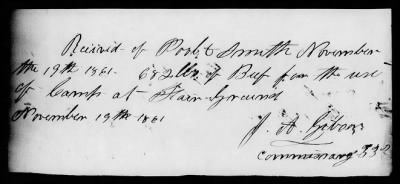 Received of Pool & Smith November
the 19th 1861. 632 lbs of Beef for the use
of Camp at Fair Ground
November 19th 1861
J. A. Gibson
Commissary